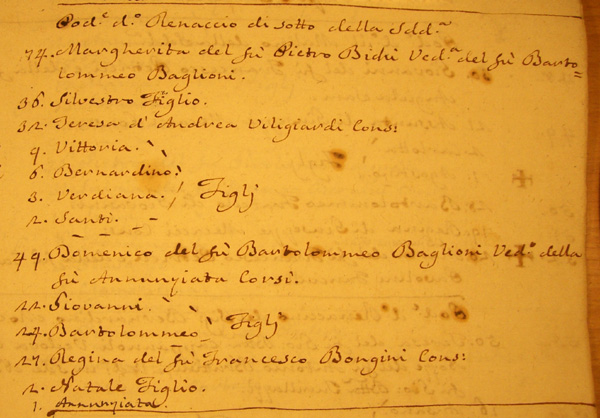 Pod.e d.o Renaccio di sotto della Sdd.a
74. Margherita del fù Pietro Bichi Ved.a del fù Barto=
lommeo Baglioni.
36. Silvestro Figlio.
32. Teresa d'Andrea Viligiardi Cons:
9. Vittoria.
6. Bernardino.
3. Verdiana. Figlj
2. Santi.
49. Domenico del fù Bartolommeo Baglioni Ved.o della
fù Annunziata Corsi.
22. Giovanni.
24. Bartolommeo Figlj
27. Regina del fù Francesco Bongini Cons:
2. Natale Figlio.
1. Annunziata.